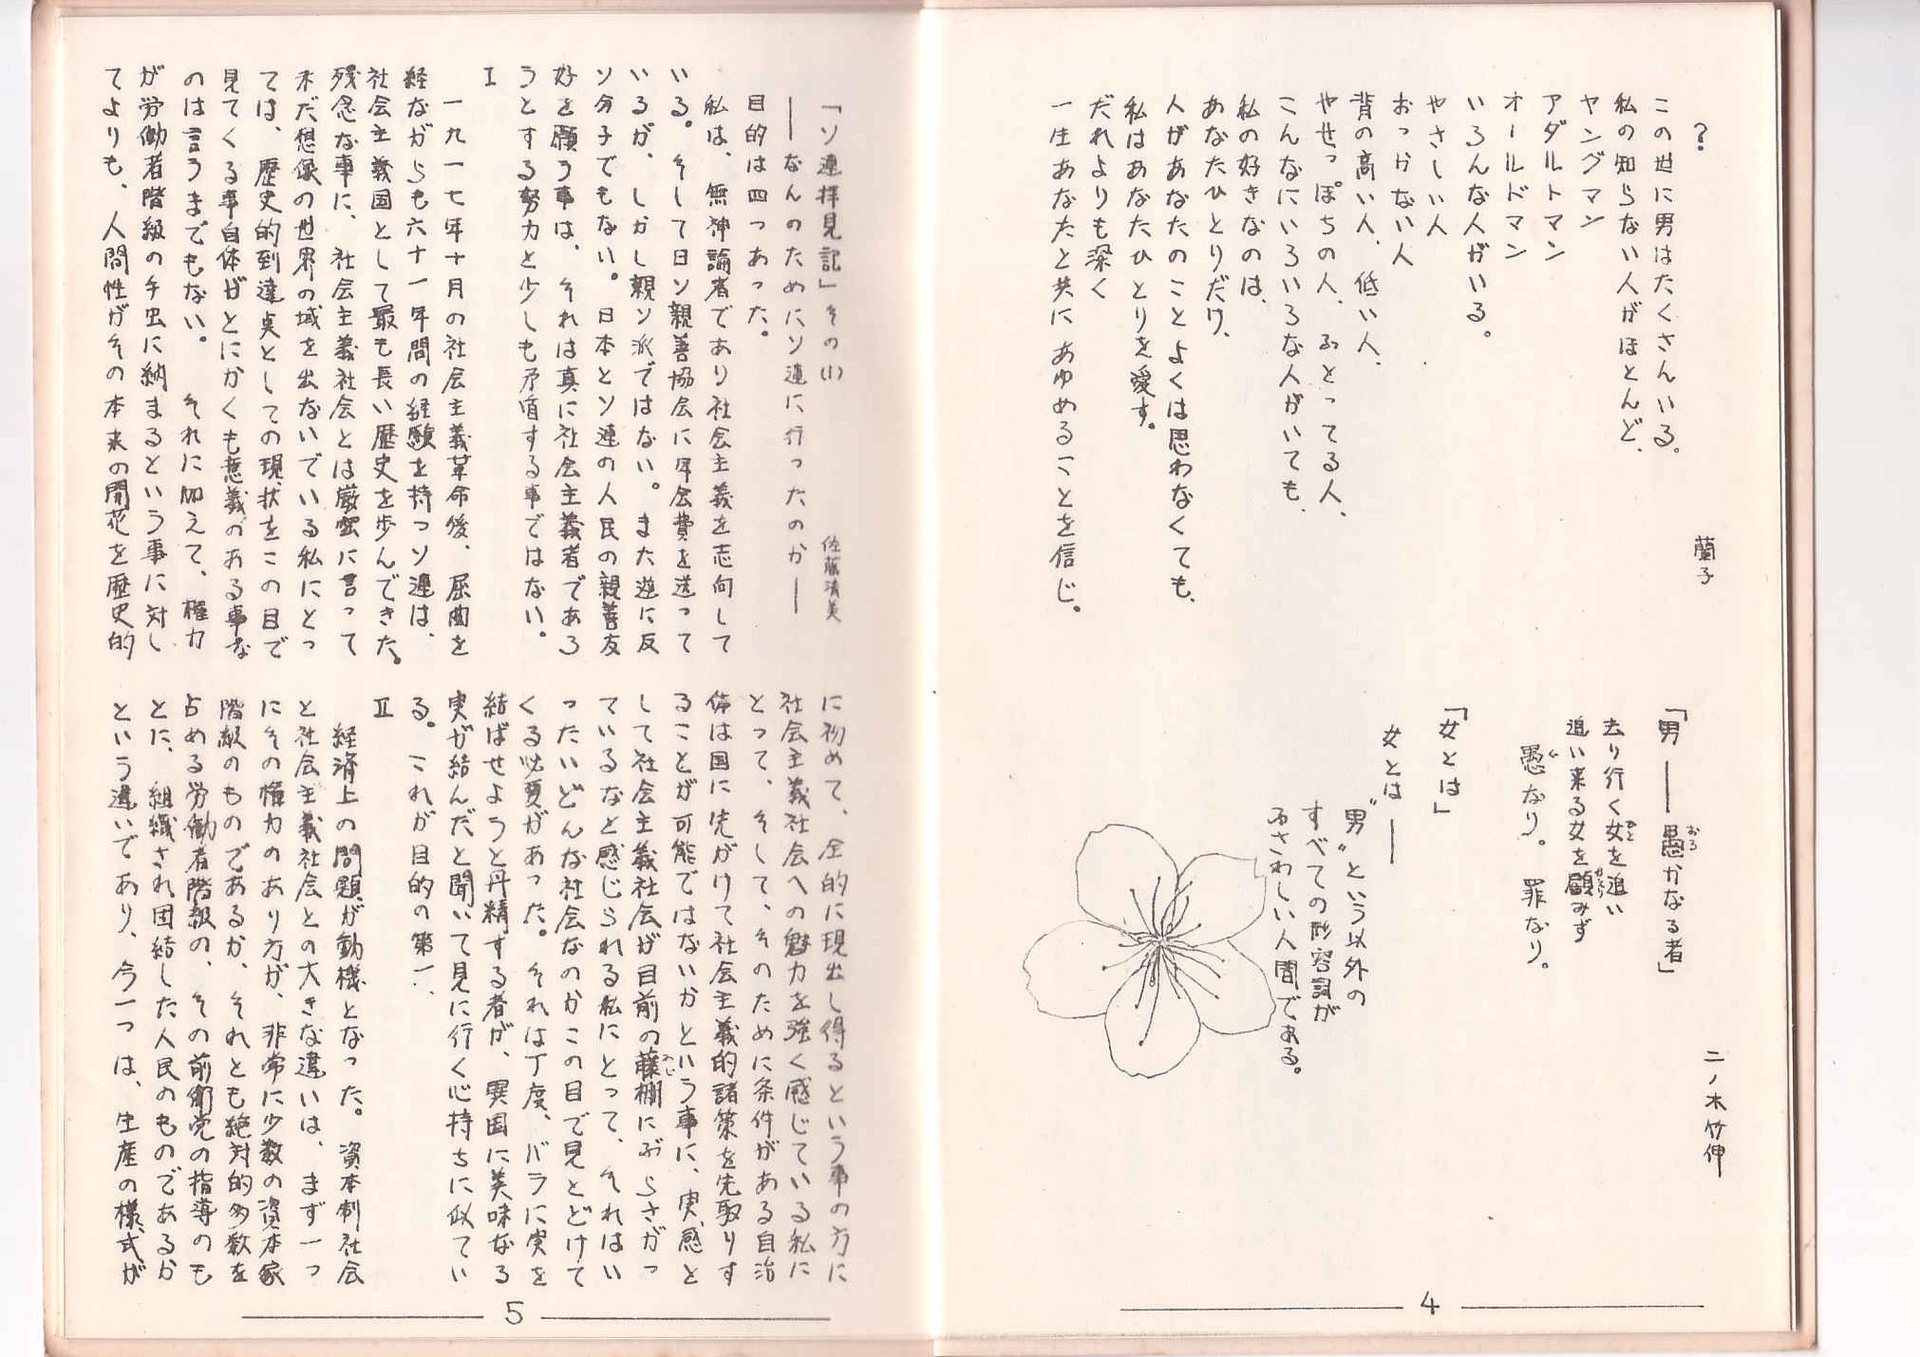 ?
蘭子
この世に男はたくさんいる。
私の知らない人がほとんど、
ヤングマン
アダルトマン
オールドマン
いろんな人がいる。
やさしい人
おっかない人
背の高い人、低い人、
やせっぽちの人、ふとってる人、
こんなにいろいろな人がいても、
私の好きなのは、
あなたひとりだけ、
人があなたのことよくは思わなくても、
私はあなたひとりを愛す。
だれよりも深く
一生あなたと共にあゆめることを信じ。
「男――愚かなる者」
おろ
二ノ木竹伸
去り行く女を追い
ひと
追い来る女を顧みず
かえり
愚なり。罪なり。
「女とは」
女とは――
〝男〟という以外の
すべての形容詞が
ふさわしい人間である。
4
「ソ連拝見記」その(1)
佐藤清美
――なんのためにソ連に行ったのか――
目的は四つあった。
私は、無神論者であり社会主義を志向して
いる。そして日ソ親善協会に年会費を送って
いるが、しかし親ソ派ではない。また逆に反
ソ分子でもない。日本とソ連の人民の親善友
好を願う事は、それは真に社会主義者であろ
うとする努力と少しも矛盾する事ではない。
I
一九一七年十月の社会主義革命後、屈曲を
経ながらも六十一年間の経験を持つソ連は、
社会主義国として最も長い歴史を歩んできた。
残念な事に、社会主義社会とは厳密に言って
未だ想像の世界の域を出ないでいる私にとっ
ては、歴史的到達点としての現状をこの目で
見てくる事自体がとにかくも意義のある事な
のは言うまでもない。それに加えて、権力
が労働者階級の手中に納まるという事に対し
てよりも、人間性がその本来の開花を歴史的
に初めて、全的に現出し得るという事の方に
社会主義社会への魅力を強く感じている私に
とって、そして、そのために条件がある自治
体は国に先がけて社会主義的諸策を先取りす
ることが可能ではないかという事に、実感と
して社会主義社会が目前の藤棚にぶらさがっ
ふじ
ているなと感じられる私にとって、それはい
ったいどんな社会なのかこの目で見とどけて
くる必要があった。それは丁度、バラに実を
結ばせようと丹精する者が、異国に美味なる
実が結んだと聞いて見に行く心持ちに似てい
る。これが目的の第一、
II
経済上の問題が動機となった。資本制社会
と社会主義社会との大きな違いは、まず一つ
にその権力のあり方が、非常に少数の資本家
階級のものであるか、それとも絶対的多数を
占める労働者階級の、その前衛党の指導のも
とに、組織され団結した人民のものであるか
という違いであり、今一つは、生産の様式が
5